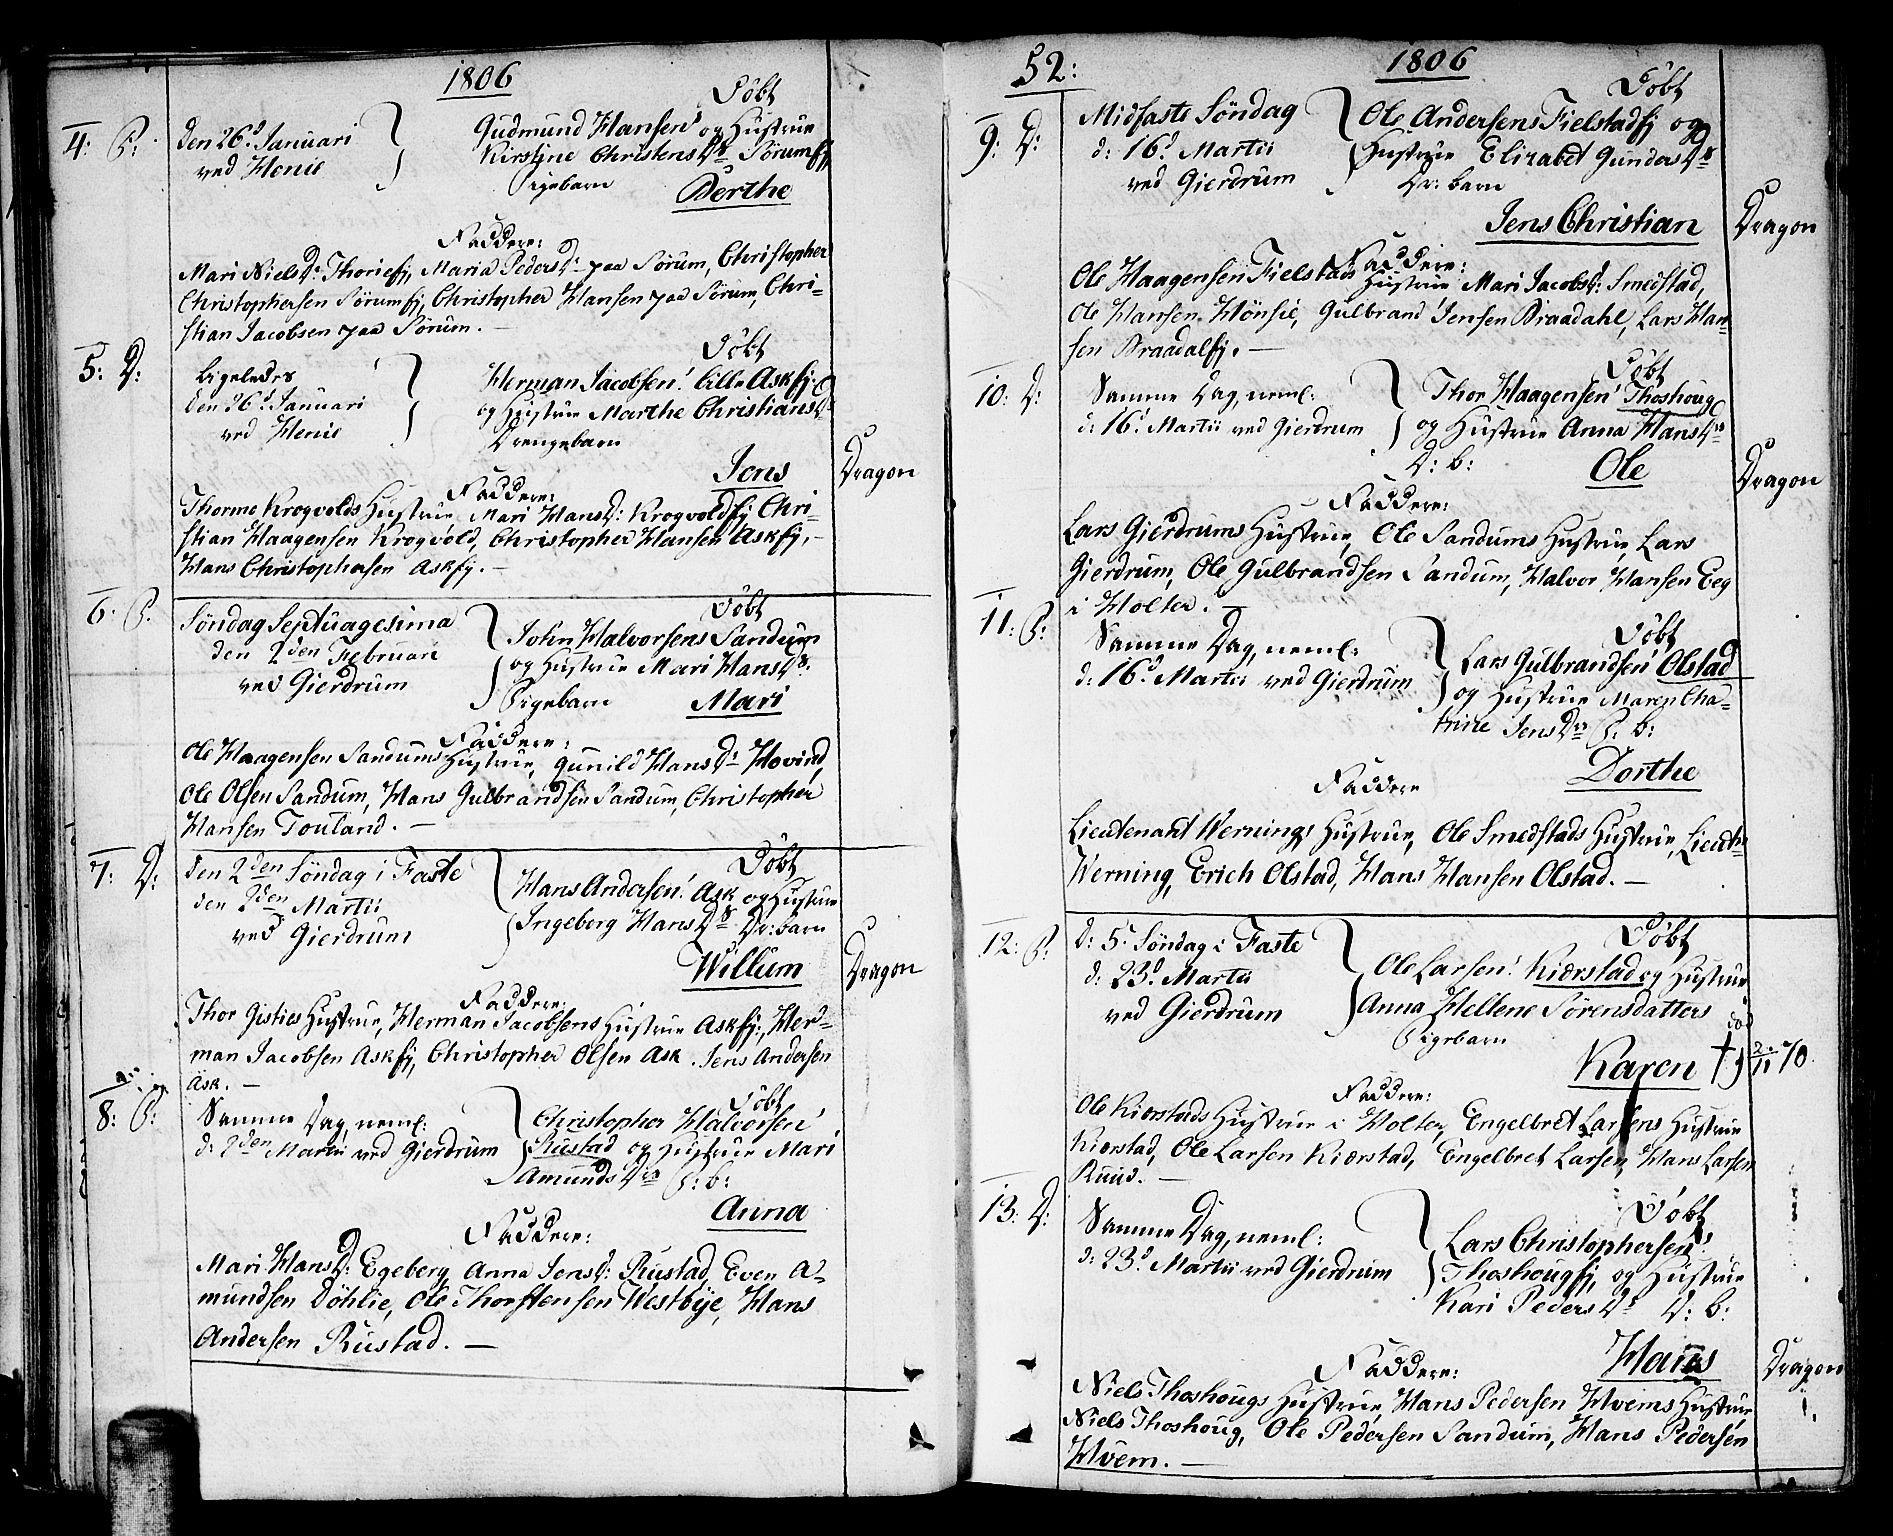 1806
4: P:
Döbt
den 26d Januari
ved Henie
Gudmund Hansens og Hustrue
Kirstine ChristensDr Sørumfj
Pigebarn
Berthe
Faddere:
Mari NielsDr Thoriefj, Maria PedersDr paa Sørum, Christopher
Christophersen Sørumfj, Christopher Hansen paa Sørum, Chri-
stian Jacobsen paa Sørum. —
5: D:
Döbt
Ligeledes
den 26d Januari
ved Henie
Herman Jacobsens lille Askfj:
og Hustrue Marthe ChristiansDr
Drengebarn
Jens
Dragon
Faddere:
Thorme Krogvolds Hustrue, Mari HansD: Krogvoldfj Chri-
stian Haagensen Krogvold, Christopher Hansen Askfj, -
Hans Christophersen Askfj. —
6: P.
Döbt
Söndag Septuagesima
den 2den Februari
ved Gierdrum
John Halvorsens Sandum
og Hustrue Mari HansDr.
Pigebarn
Mari
Faddere:
Ole Haagensen Sandums Hustrue, Gunild HansDr Hovind,
Ole Olsen Sandum, Hans Gulbrandsen Sandum, Christopher
Hansen Touland. —
7: D:
Döbt
den 2den Söndag i Faste
den 2den Martii
ved Gierdrum
Hans Andersens Ask og Hustrue
Ingeborg HansDr Dr: barn
Willum
Dragon
Faddere:
Thor Gisties Hustrue, Herman Jacobsens Hustrue Askfj:, Her-
man Jacobsen Askfj, Christopher Olsen Ask. Jens Andersen
Ask. —
8: P:
Döbt
Samme Dag, neml:
d: 2den Martii ved Gierdrum
Christopher Halvorsens
Rustad og Hustrue Mari
AmundsDr P: b:
Anna
Faddere:
Mari HansD: Egeberg, Anna JensD: Rustad, Even A-
mundsen Döhlie, Ole Thorstensen Westbye, Hans
Andersen Rustad. —
52:
1806
9: D:
Döbt
Midfaste Söndag
d: 16d Martii
ved Gierdrum
Ole Andersens Fielstadfj og
Hustrue Elizabet GundersDr
Dr: barn
Jens Christian
Dragon
Faddere:
Ole Haagensen Fielstads Hustrue Mari JacobsD: Smedstad,
Ole Hansen Hönsie, Gulbrand Jensen Braadahl, Lars Han-
sen Braadalfj. —
10: D:
Döbt
Samme Dag, neml:
d: 16d Martii ved Gierdrum
Thor Haagensens Thoshoug
og Hustrue Anna HansDr
D: b:
Ole
Dragon
Faddere:
Lars Gierdrums Hustrue, Ole Sandums Hustrue Lars
Gierdrum, Ole Gulbrandsen Sandum, Halvor Hansen Eeg
i Holter. —
11: P:
Döbt
Samme Dag, neml:
d: 16d Martii ved Gierdrum
Lars Gulbrandsens Olstad
og Hustrue Maren Cha-
trine JensDr P: b:
Dorthe
Faddere
Lieutenant Wernings Hustrue, Ole Smedstads Hustrue, Lieutn:
Werning, Erich Olstad, Hans Hansen Olstad. —
12: P:
Döbt
d: 5d Söndag i Faste
d: 23d Martii
ved Gierdrum
Ole Larsens Kiærstad og Hustrue
Anna Hellene Sörensdatters
Pigebarn
Karen †
död
Faddere:
Ole Kiærstads Hustrue i Holter, Engelbret Larsens Hustrue
Kiærstad, Ole Larsen Kiærstad, Engelbret Larsen, Hans Larsen
Ruud. —
13: D:
Döbt
Samme Dag, neml:
d: 23d Martii ved Gierdrum
Lars Christophersens
Thoshougfj, og Hustrue
Kari PedersDr D: b:
Hans
Dragon
Faddere:
Niels Thoshougs Hustrue, Hans Pedersen Hvems Hustrue
Niels Thoshoug, Ole Pedersen Sandum, Hans Pedersen
Hvem. —